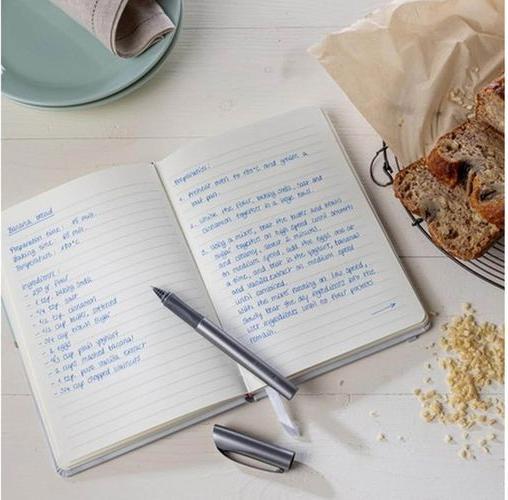 Banana bread
Preparation time: 15 min.
Baking time: 65 min.
Temperature: 180°C
Ingredients:
- 250 gr. flour
- 1 tsp. baking soda
- 1/4 tsp. salt
- 1/2 tsp. cinnamon
- 1/2 cup butter, softened
- 3/4 cup brown sugar
- 2 eggs
- 1/3 cup plain yoghurt
- 2 cups mashed bananas
- 1 tsp. pure vanilla extract
- 3/4 cup chopped walnuts
Preparation:
1. Preheat oven to 180°C and grease a
loaf pan.
2. Whisk the flour, baking soda, salt and
cinnamon together in a large bowl.
3. Using a mixer, beat the butter and brown
sugar together on high speed until smooth
and creamy, about 2 minutes.
on medium speed, add the eggs one at
a time, and beat in the yoghurt, bananas
and vanilla extract on medium speed
until combined.
with the mixer running at low speed,
slowly beat the dry ingredients into the
wet ingredients until no flour pockets
remain.